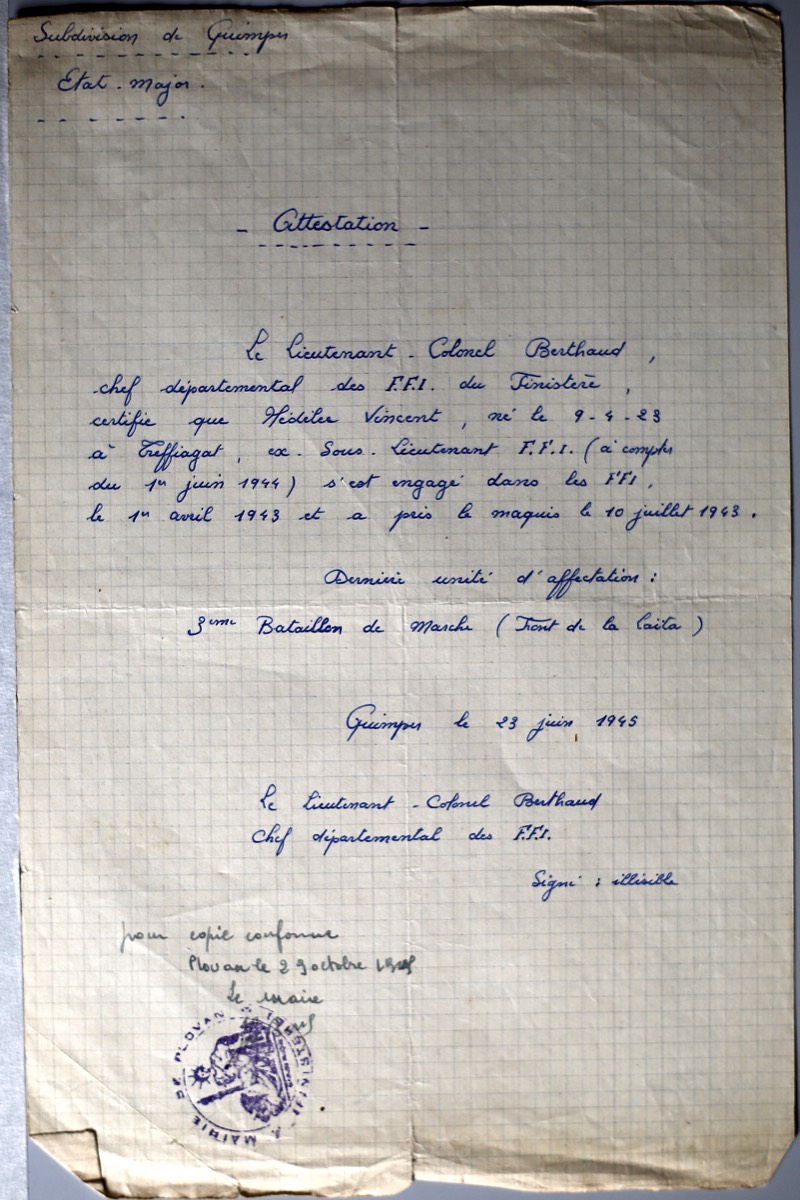 Subdivision de Quimper
Etat-Major.
- Attestation -
Le Lieutenant-Colonel Berthaud,
chef départemental des F.F.I. du Finistère,
certifie que Hédéler Vincent, né le 9-4-23
à Treffiagat, ex-Sous-Lieutenant F.F.I. (à compter
du 1er juin 1944) s'est engagé dans les FFI,
le 1er avril 1943 et a pris le maquis le 10 juillet 1943.
Dernière unité d'affectation :
3ème Bataillon de Marche (Front de la Laïta)
Quimper le 23 juin 1945
Le Lieutenant-Colonel Berthaud
Chef départemental des F.F.I.
Signé : illisible
pour copie conforme
Plovan le 29 octobre 1945
Le maire
MAIRIE DE PLOVAN * (FINISTERE) *